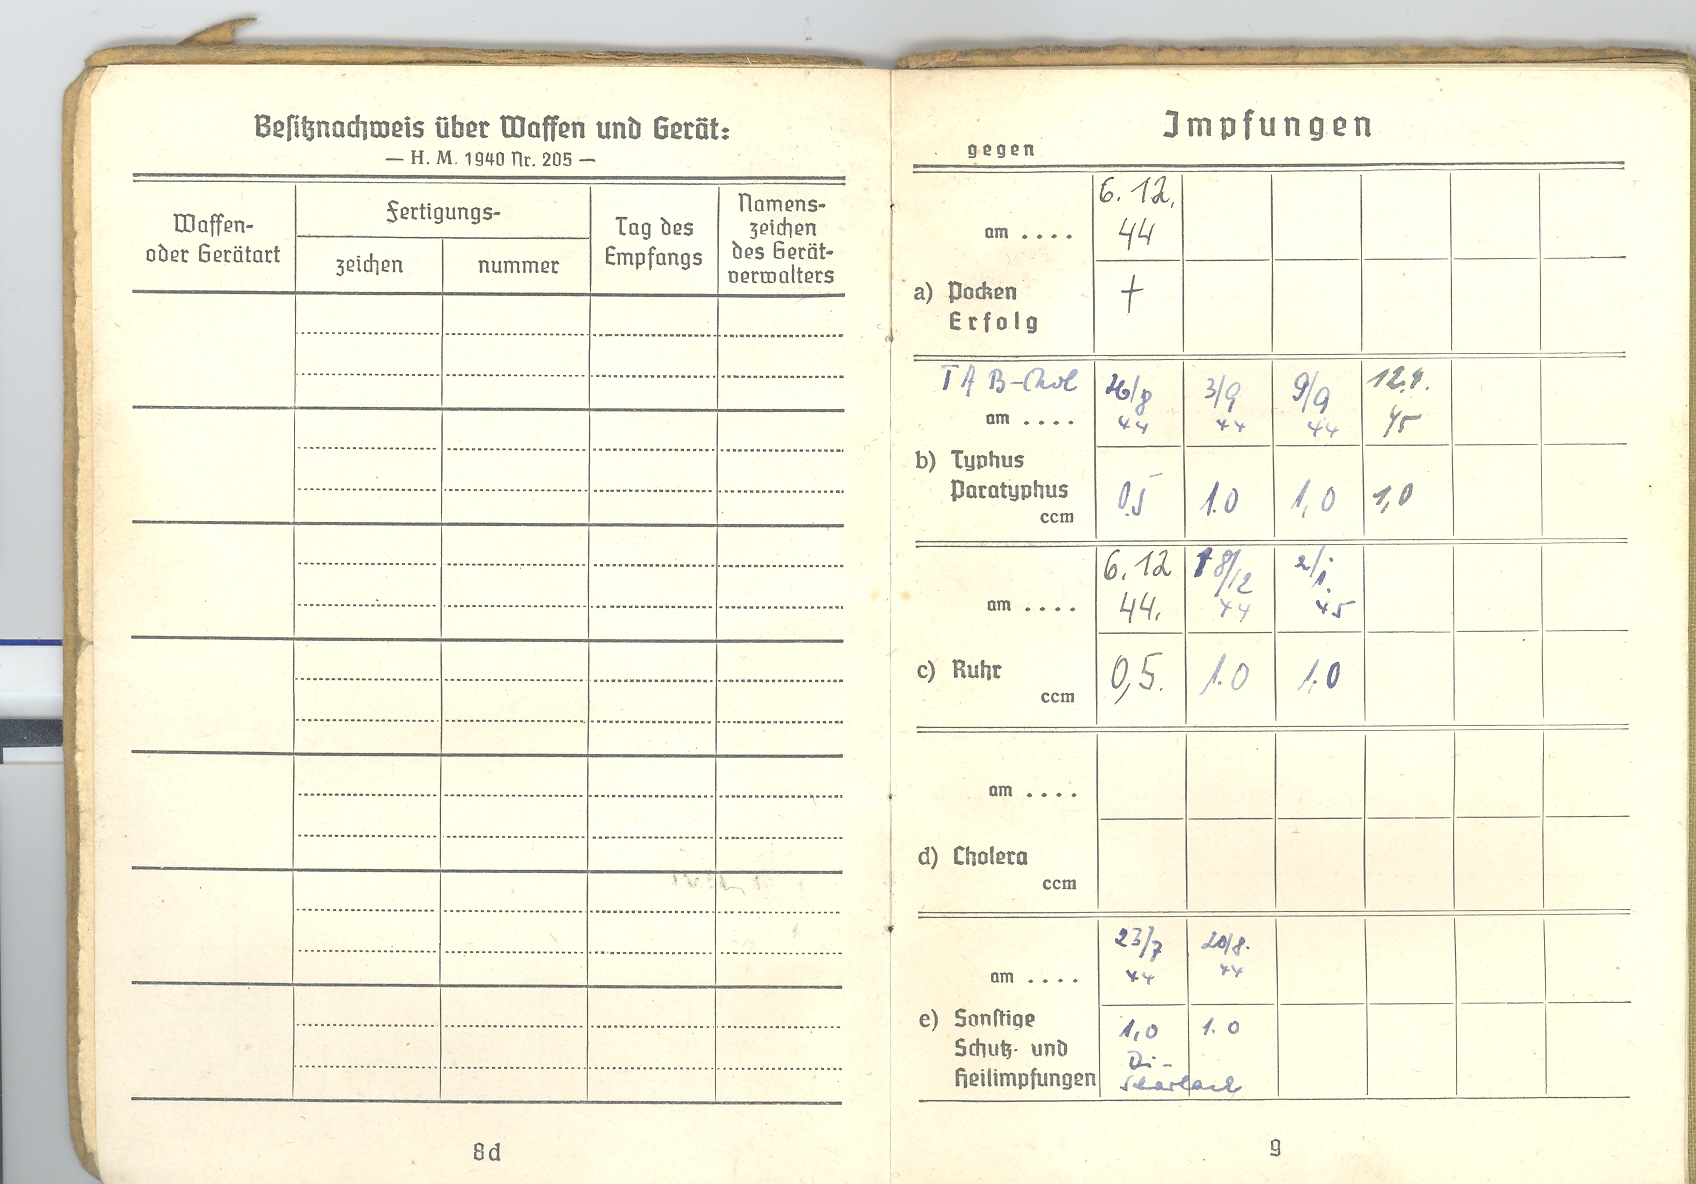 Besitznachweis über Waffen und Gerät:
— H. M. 1940 Nr. 205 —
Waffen-
oder Gerätart
Fertigungs-
zeichen
nummer
Tag des
Empfangs
Namens-
zeichen
des Gerät-
verwalters
8d
Impfungen
gegen
am ....
6. 12.
44
a) Pocken
Erfolg
+
TAB-Chol
am ....
26/8
44
3/9
44
9/9
44
12.4.
45
b) Typhus
Paratyphus
ccm
0.5
1.0
1,0
1,0
am ....
6. 12
44.
18/12
44
2/1.
45
c) Ruhr
ccm
0,5.
1.0
1.0
am ....
d) Cholera
ccm
am ....
23/7
44
20/8.
44
e) Sonstige
Schutz- und
Heilimpfungen
1,0
1.0
Di-
Scharlach
9